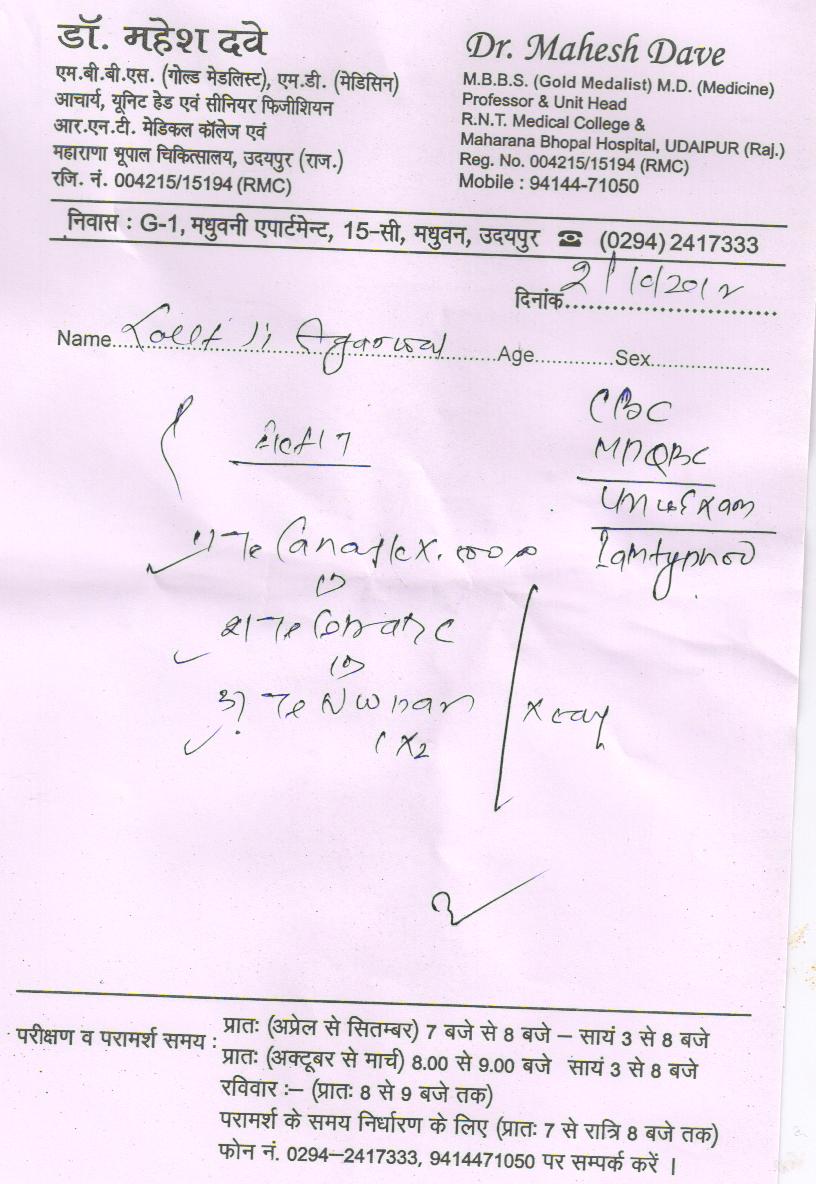 डॉ. महेश दवे
एम.बी.बी.एस. (गोल्ड मेडलिस्ट), एम.डी. (मेडिसिन)
आचार्य, यूनिट हेड एवं सीनियर फिजीशियन
आर.एन.टी. मेडिकल कॉलेज एवं
महाराणा भूपाल चिकित्सालय, उदयपुर (राज.)
रजि. नं. 004215/15194 (RMC)
Dr. Mahesh Dave
M.B.B.S. (Gold Medalist) M.D. (Medicine)
Professor & Unit Head
R.N.T. Medical College &
Maharana Bhopal Hospital, UDAIPUR (Raj.)
Reg. No. 004215/15194 (RMC)
Mobile : 94144-71050
निवास : G-1, मधुवनी एपार्टमेन्ट, 15-सी, मधुवन, उदयपुर ☎ (0294) 2417333
दिनांक 2/10/2012
Name Ji Agarwal Age Sex
CBC
MPQBC
Exam
1)
2)
3)
X2
परीक्षण व परामर्श समय : प्रातः (अप्रेल से सितम्बर) 7 बजे से 8 बजे – सायं 3 से 8 बजे
प्रातः (अक्टूबर से मार्च) 8.00 से 9.00 बजे सायं 3 से 8 बजे
रविवार :– (प्रातः 8 से 9 बजे तक)
परामर्श के समय निर्धारण के लिए (प्रातः 7 से रात्रि 8 बजे तक)
फोन नं. 0294–2417333, 9414471050 पर सम्पर्क करें ।